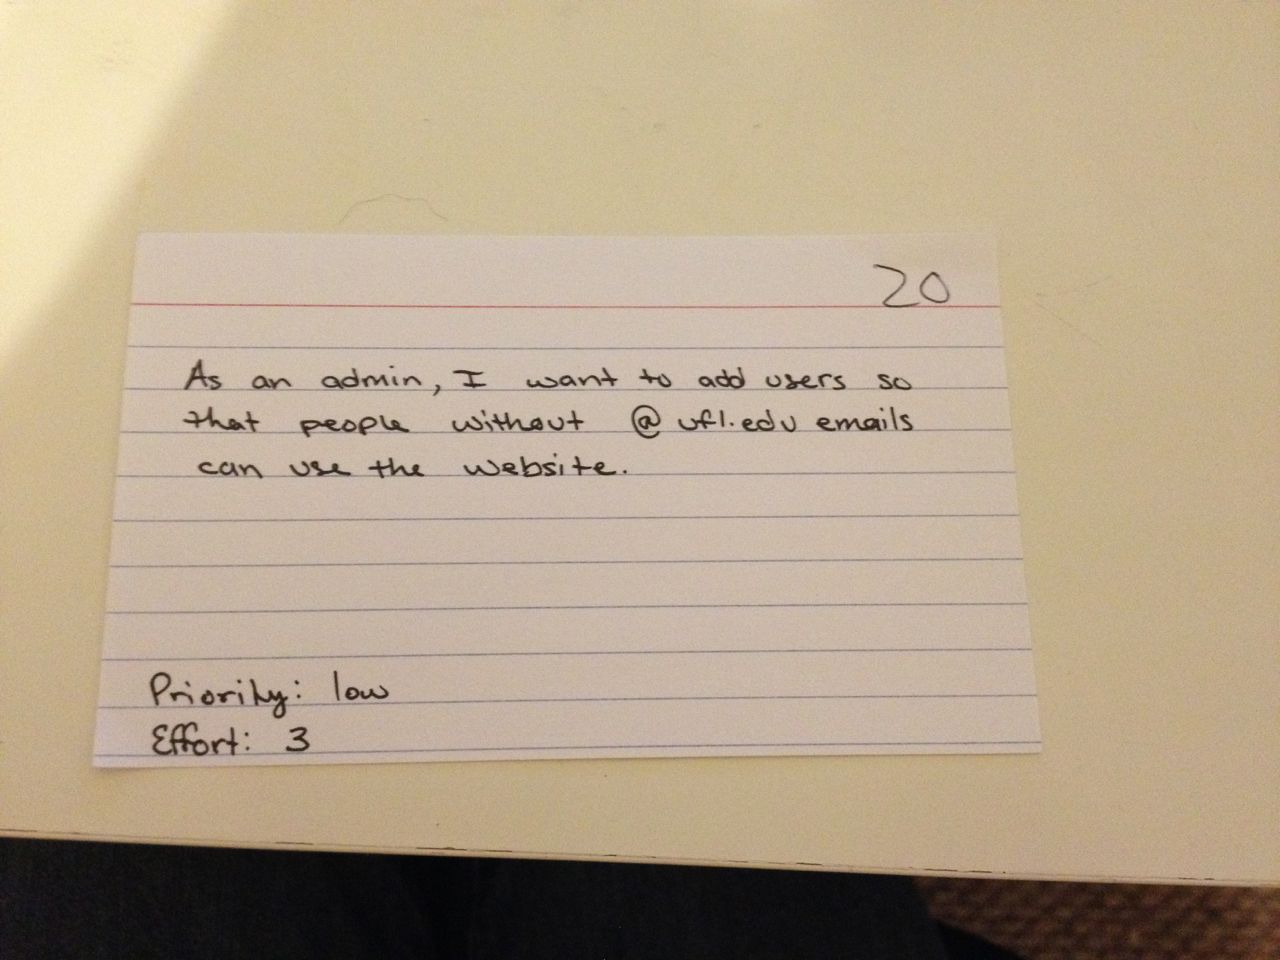 20
As an admin, I want to add users so
that people without @ufl.edu emails
can use the website.
Priority: low
Effort: 3